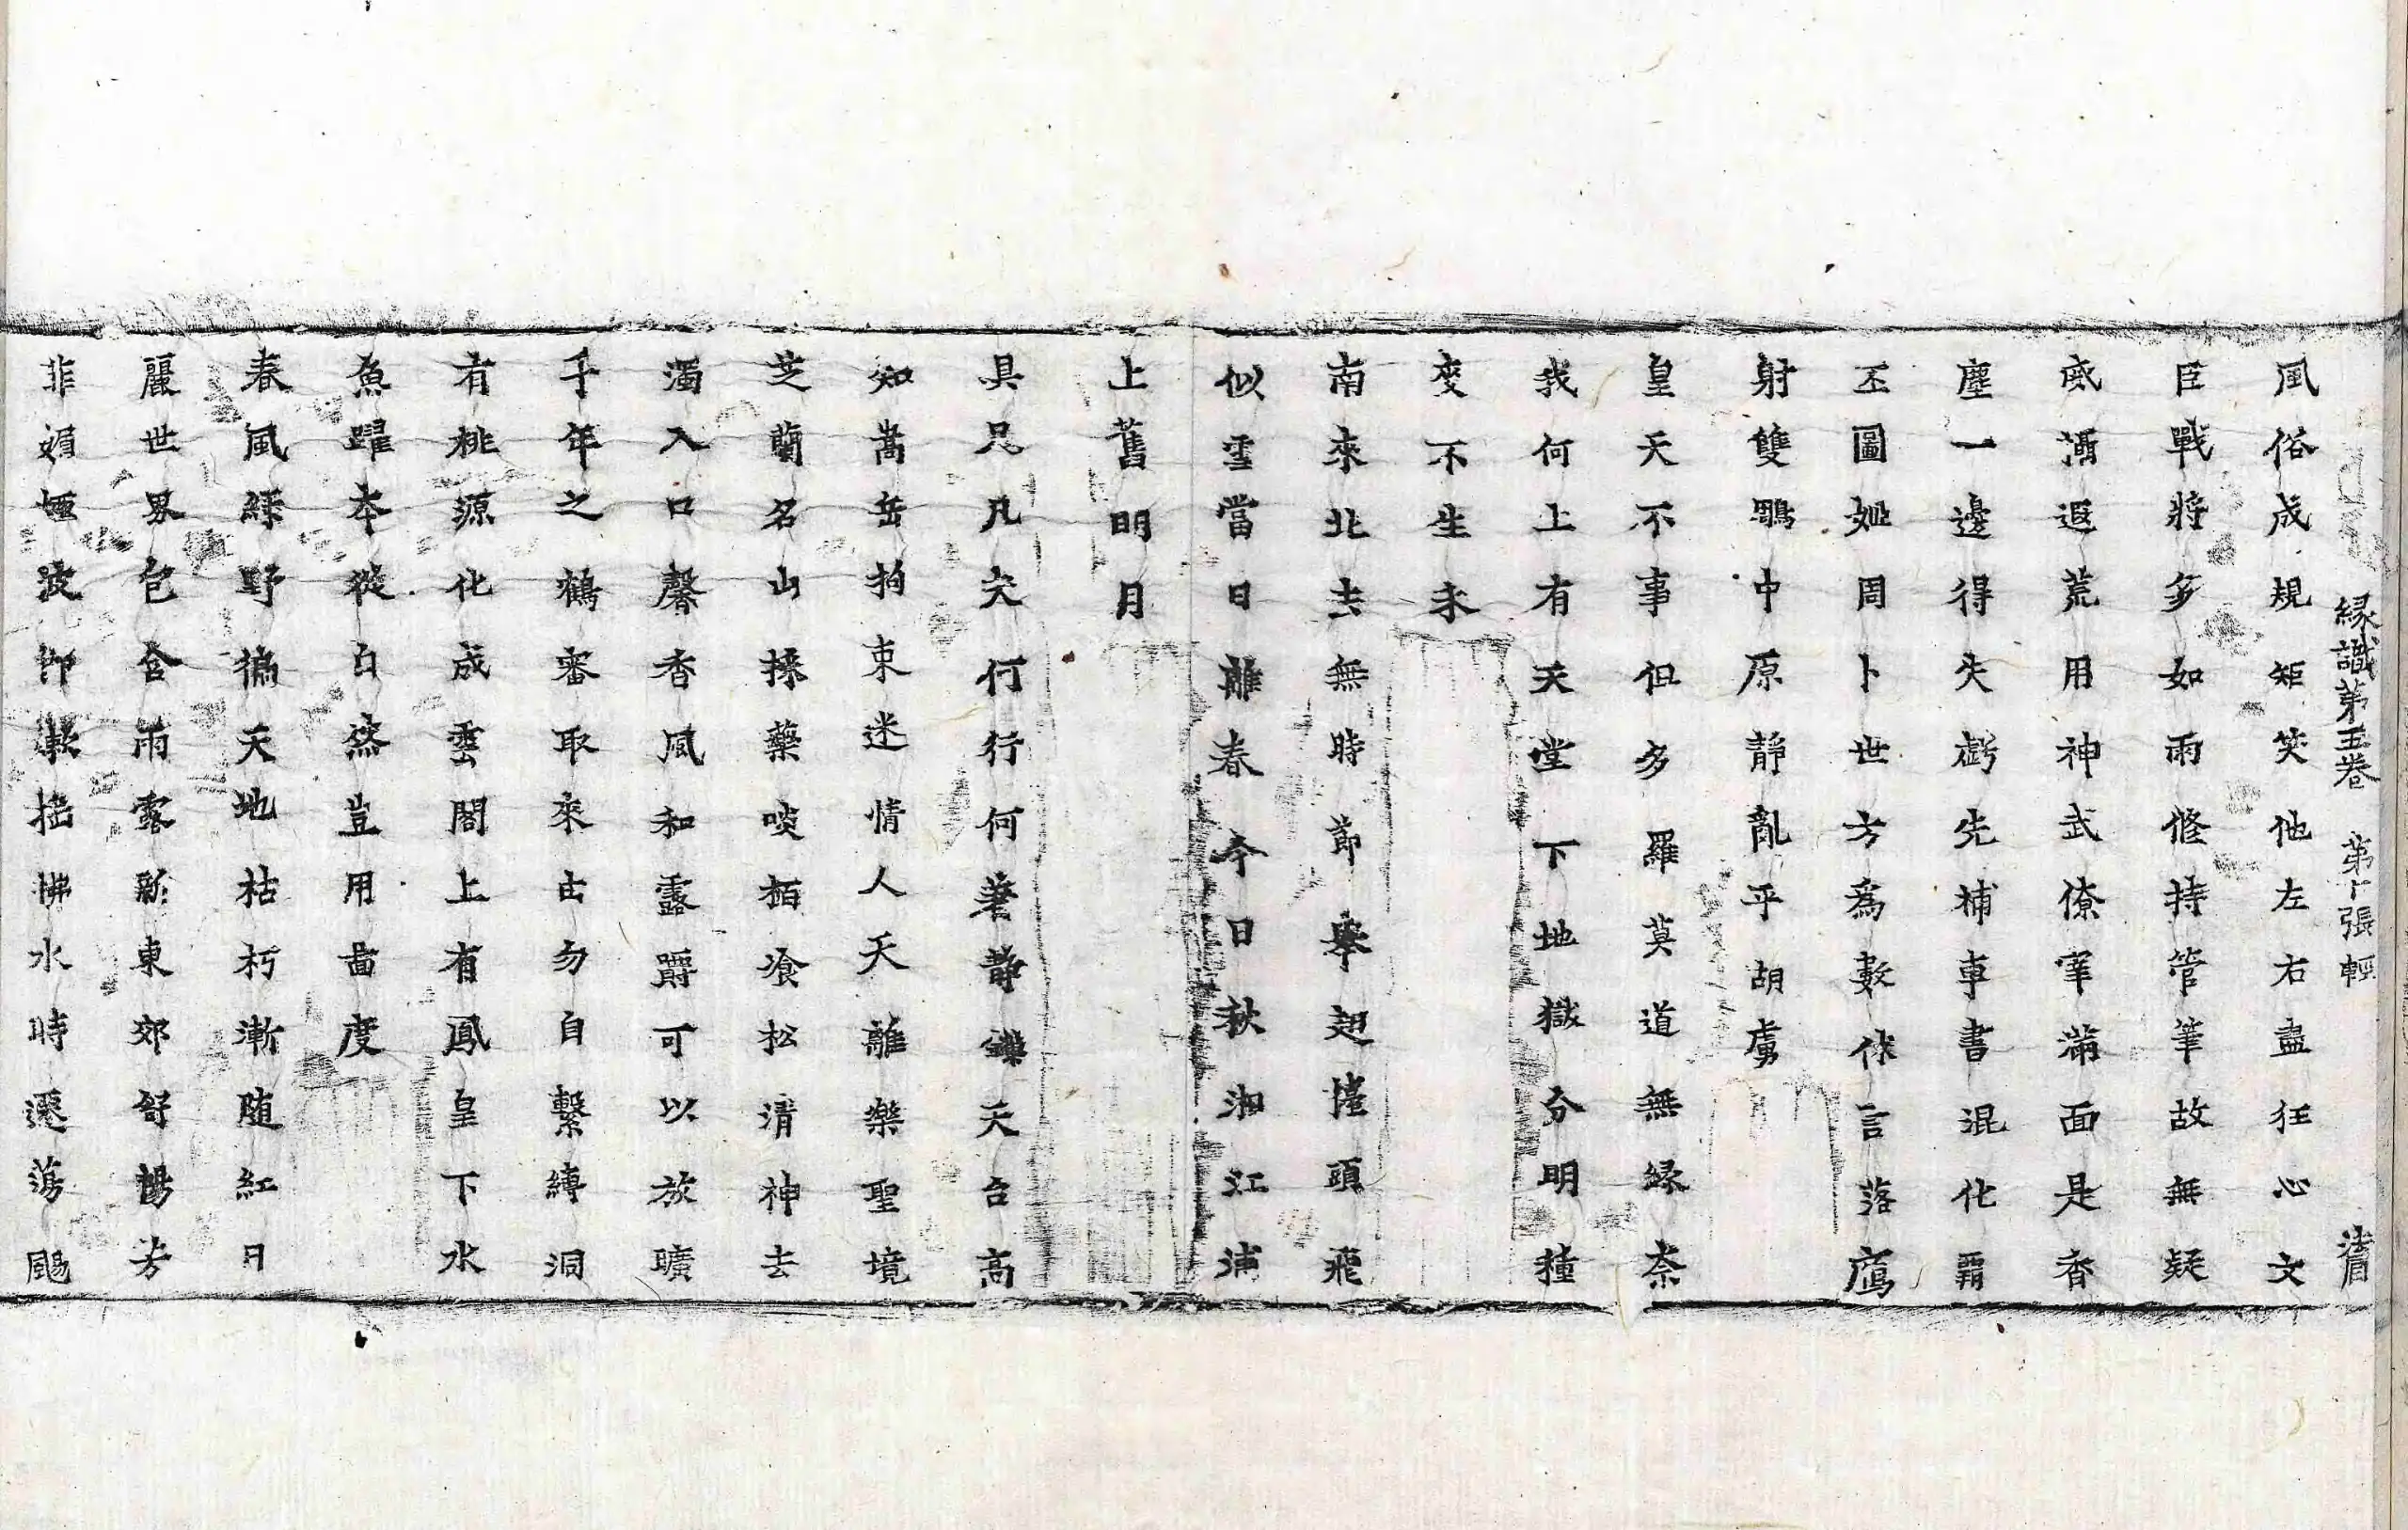 緣識第五卷 第十張 輕
風俗成規矩笑他左右盡狂心文
臣戰將多如雨修持管筆故無疑
威漘遐荒用神武僚寀滿面是香
塵一邊得失虧先補車書混化霸
丕圖妣周卜世方為數休言落鴈
射雙鵰中原靜亂乎胡虜
皇天不事但多羅莫道無緣奈
我何上有天堂下地獄分明種
變不生未
南來北去無時節舉翅摧頭飛
似雪當日離春今日秋湘江浦
上舊明月
具足凡夫何行何業靜礫天台高
知嵩岳拘束迷情人天離樂聖境
芝蘭名山採藥啖栢飡松清神去
濁入口馨香風和露爵可以放曠
千年之鶴審取來由勿自繫縛洞
有桃源化成雲閣上有鳳皇下水
魚躍本從自然豈用啚度
春風綠野徧天地枯朽漸随紅日
麗世界包含雨露新東郊舒暢芳
菲媚烟波柳軟搖拂水時還蕩颺